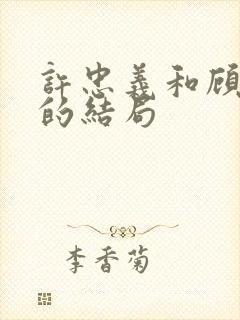 許忠義和顾
的結局
李香菊